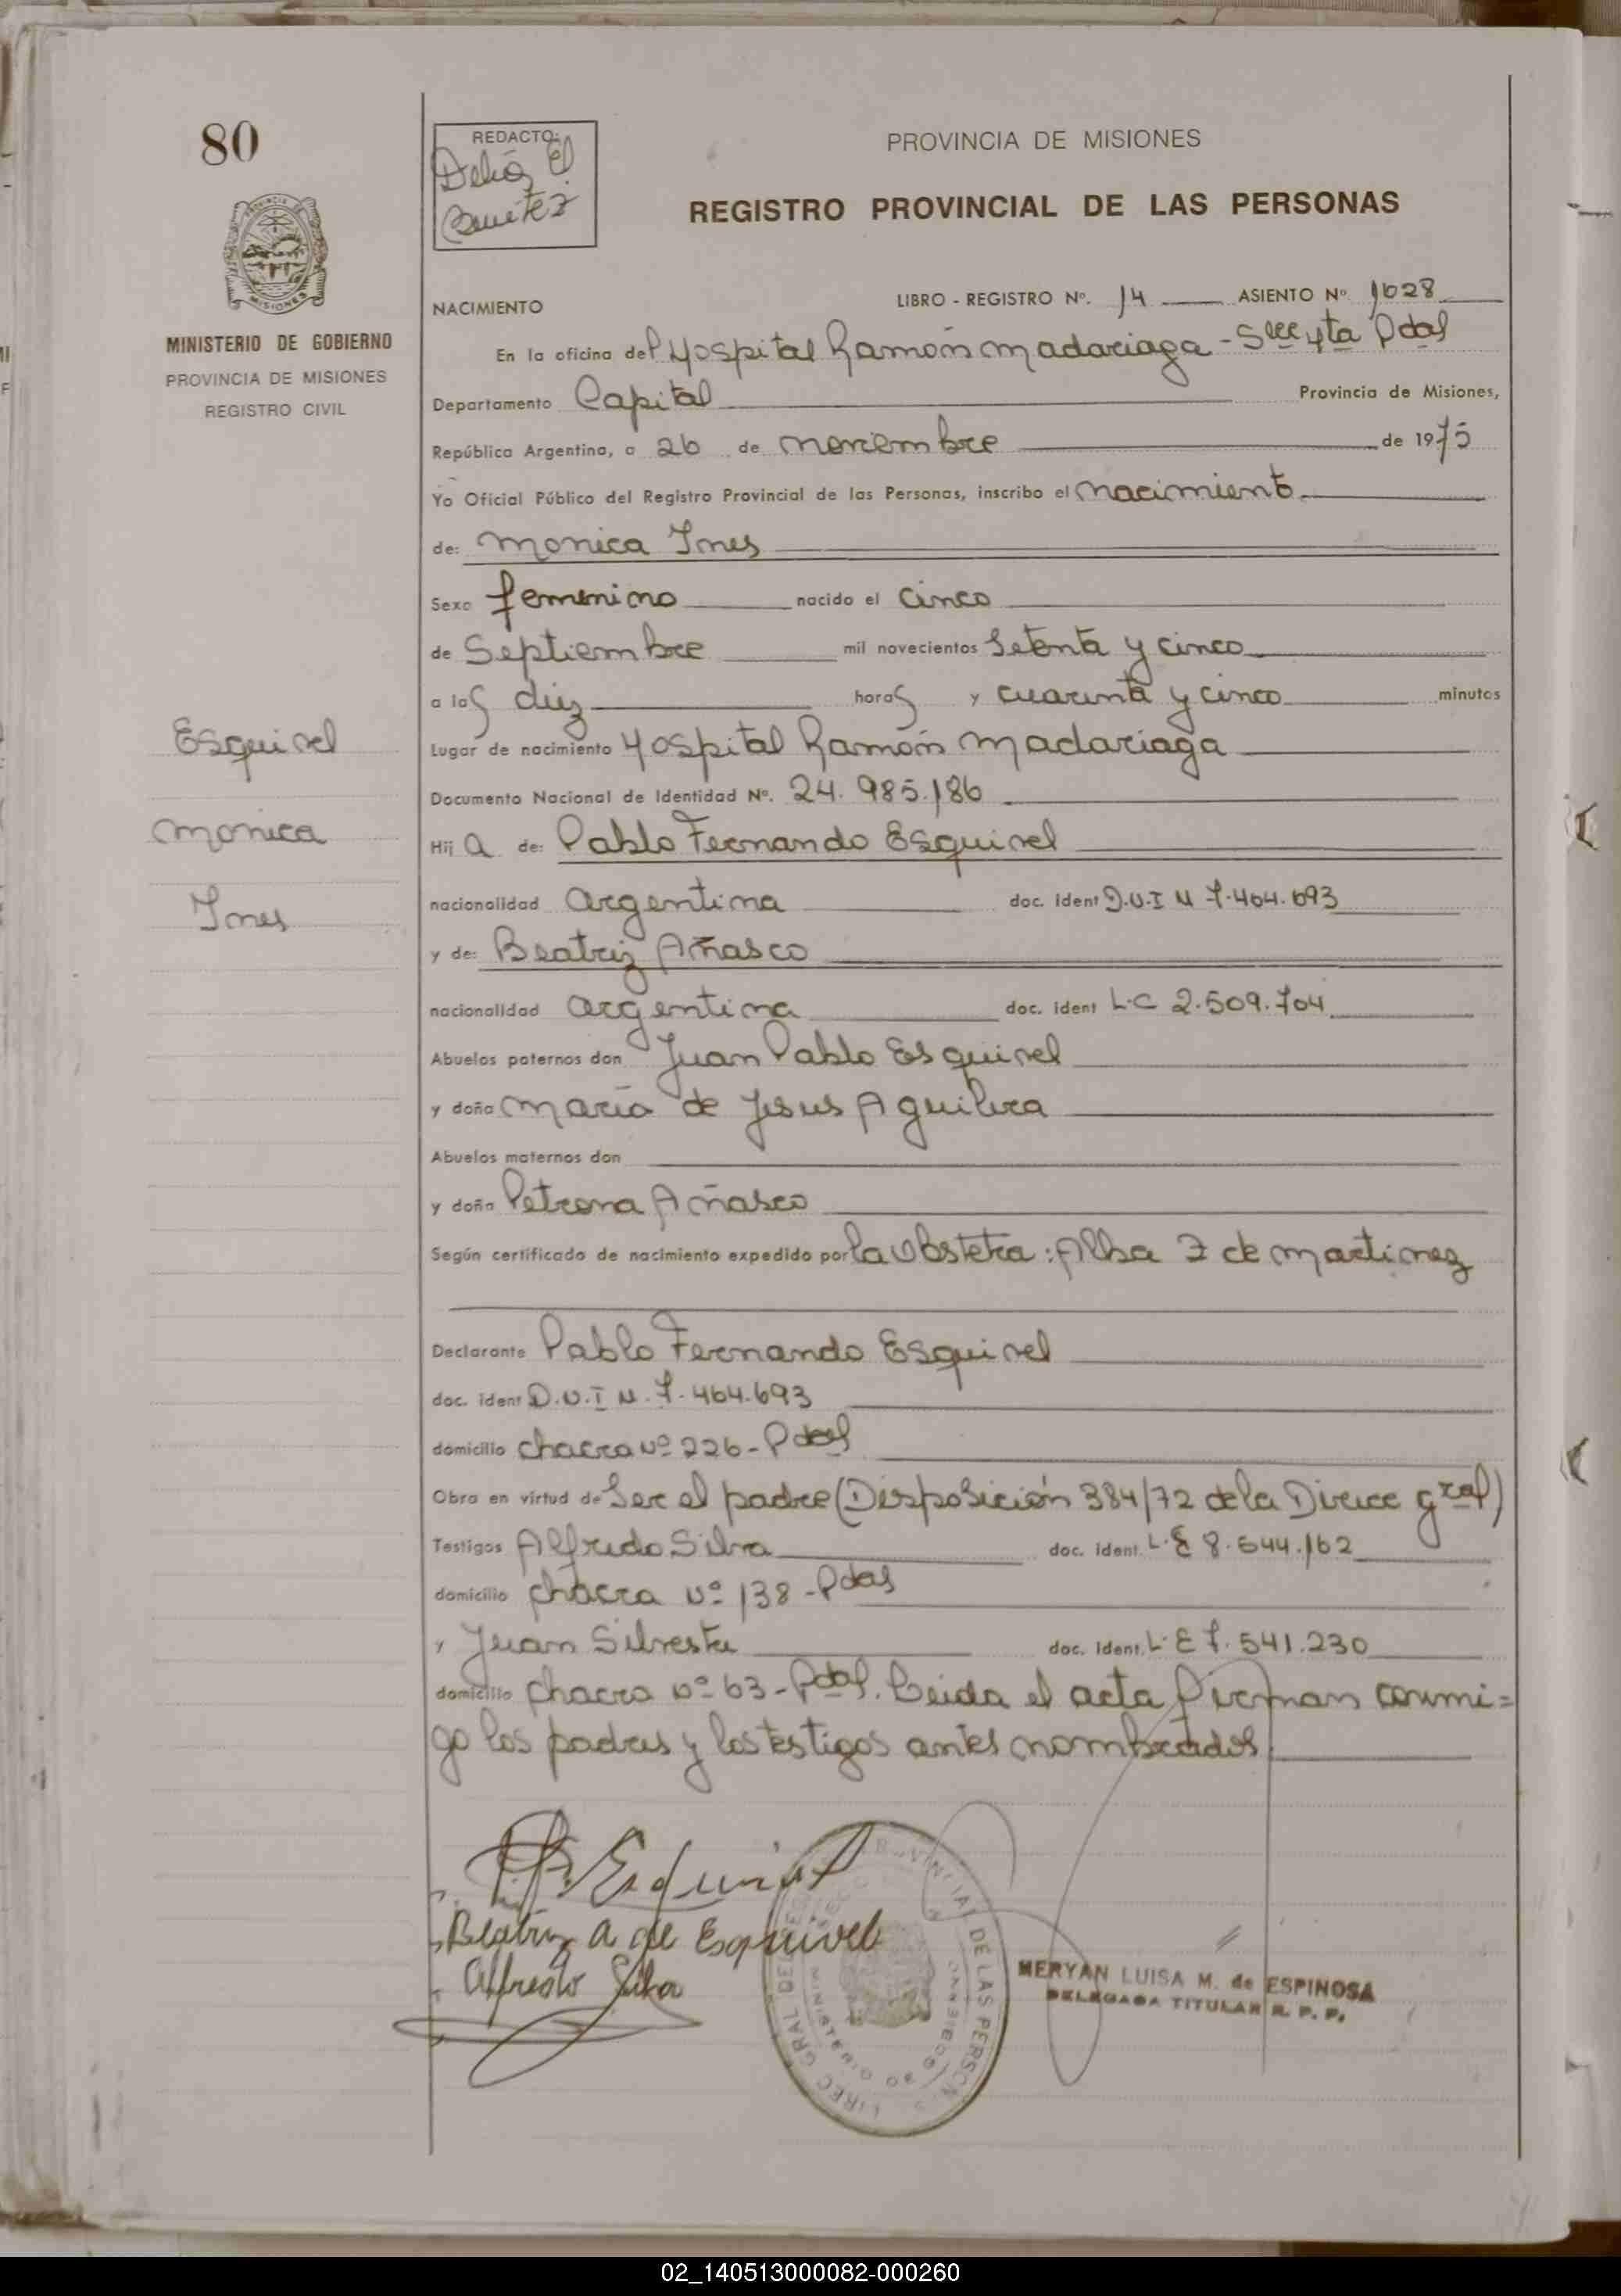 80
REDACTO:
Delia E
Benítez
PROVINCIA DE MISIONES
REGISTRO PROVINCIAL DE LAS PERSONAS
MINISTERIO DE GOBIERNO
PROVINCIA DE MISIONES
REGISTRO CIVIL
NACIMIENTO
LIBRO - REGISTRO Nº. 14 ASIENTO Nº. 1028
En la oficina del Hospital Ramón Madariaga - Secc 4ta Pdas
Departamento Capital Provincia de Misiones,
República Argentina, a 26 de noviembre de 1975
Yo Oficial Público del Registro Provincial de las Personas, inscribo el nacimiento
de: Monica Ines
Sexo femenino nacido el cinco
de Septiembre mil novecientos Setenta y cinco
a las diez horas y cuarenta y cinco minutos
Esquivel
Monica
Ines
Lugar de nacimiento Hospital Ramón Madariaga
Documento Nacional de Identidad Nº. 24.985.186
Hija de: Pablo Fernando Esquivel
nacionalidad argentina doc. ident D.N.I N 7.464.693
y de: Beatriz Añasco
nacionalidad argentina doc. ident L.C 2.509.704
Abuelos paternos don Juan Pablo Esquivel
y doña María de Jesus Aguilera
Abuelos maternos don
y doña Petrona Añasco
Según certificado de nacimiento expedido por la Obstetra: Alba Z de Martinez
Declarante Pablo Fernando Esquivel
doc. ident D.N.I N. 7.464.693
domicilio chacra Nº 226 - Pdas
Obra en virtud de Ser el padre (Disposición 384/72 de la Direcc gral)
Testigos Alfredo Silva doc. ident. L.E 8.544.162
domicilio chacra Nº 138 - Pdas
y Juan Silveste doc. ident. L.E 7.541.230
domicilio chacra Nº 63 - Pdas. Leida el acta firman conmi=
go los padres y los testigos antes nombrados
P. F. Esquivel
Beatriz A de Esquivel
Alfredo Silva
DE LAS PERSON
MINISTERIO DE GOBIERNO
MERYAN LUISA M. de ESPINOSA
DELEGADA TITULAR R. P. P.
02_140513000082-000260